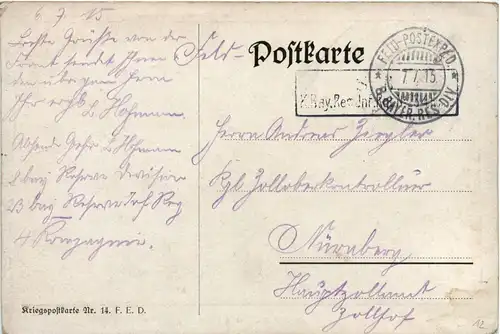 6. 7. 15
Beste Grüße von der
Front sendet Ihnen
den übrigen Herrn
Ihr ergb. L Hofmann
Absend. Gefr. L Hofmann
8 bay Reserve Division
23 bay Reserve Inf. Reg
4 Kompagnie.
Kriegspostkarte Nr. 14. F. E. D.
Feld-Postkarte
FELD-POSTEXPED.
7. 7. 15
* 8. BAYER. RES.-DIV. *
Bay. Res. Inf.
Herrn Andreas Ziegler
Kgl. Zolloberkontrolleur
Nürnberg
Hauptzollamt
Zollhof
12